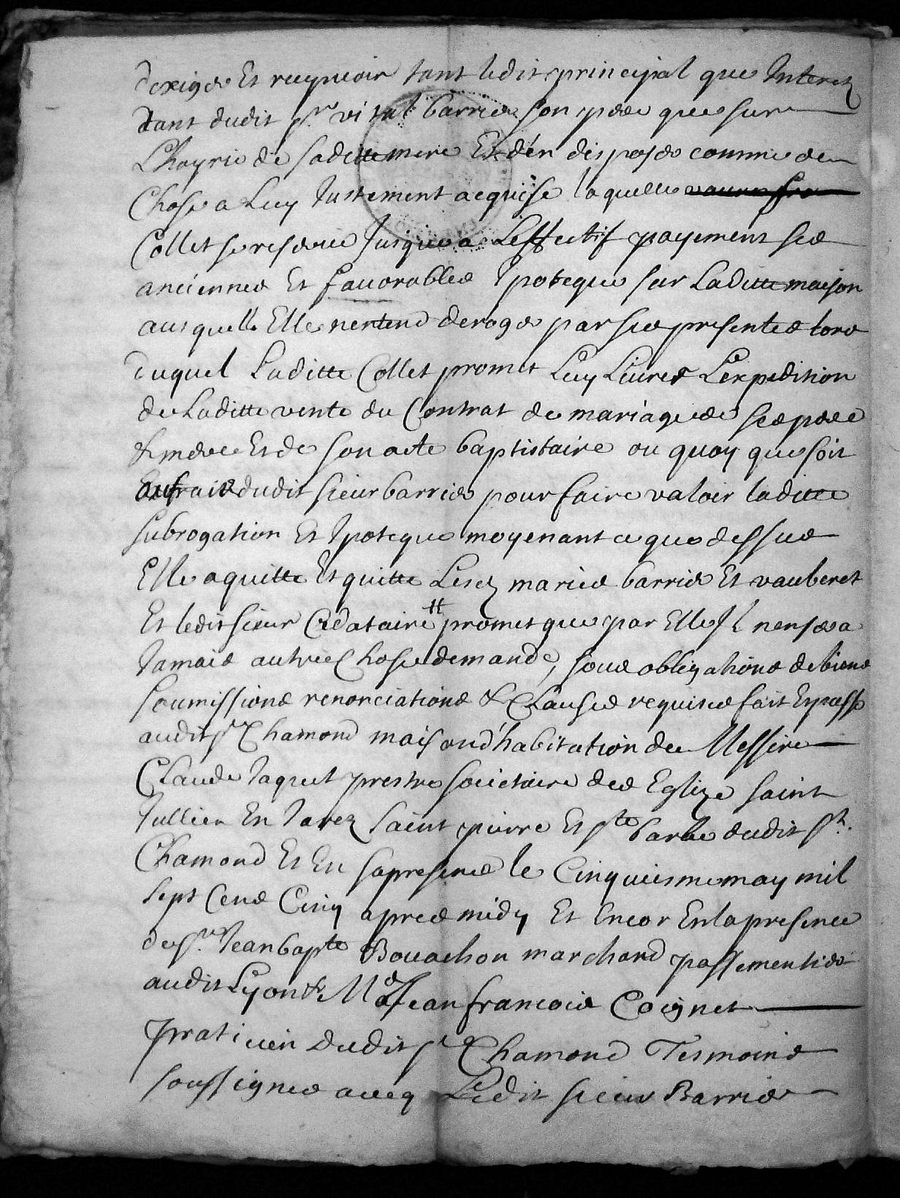 dexiger Et recepvoir tant ledit principal que Interetz
tant dudit sr. vital barrier son pere que sur
L'hoyrie de saditte mere Et d'en disposer comme de
Chose a Luy Justement acquise laquelle
Collet se reserve Jusques a L'effectif payement ses
anciennes Et favorables Ipoteques sur Laditte maison
ausquelles Elle n'entend deroger par ses presentes lors
duquel Laditte Collet promet Luy Livrer L'expedition
de Laditte vente du Contrat de mariage de ses pere
& mere Et de son acte baptistaire ou quoy que soit
dudit sieur barrier pour faire valoir laditte
subrogation Et Ipoteque moyenant ce que dessus
Elle a quitté Et quitte Lesd mariés barrier Et vauberet
Et ledit sieur Cedataire # promet que par Elle Il n'en sera
Jamais autre Chose demandé, sous obligations de biens
soumissions renonciations & Clauses requises fait Et passé
audit st. Chamond maison d'habitation de Messire
Claude Jaquet prestre societaire des Eglize saint
Jullien En Jarez saint pierre Et ste barbe dudit st.
Chamond Et En sa presence le Cinquiesme may mil
sept Cens Cinq apres midy Et Encor En la presence
de sr. Jean bapte Bouachon marchand passementier
audit Lyon & Me Jean francois Coignet
praticien dudit st Chamond Tesmoins
soussignes avecq Ledit sieur Barrier